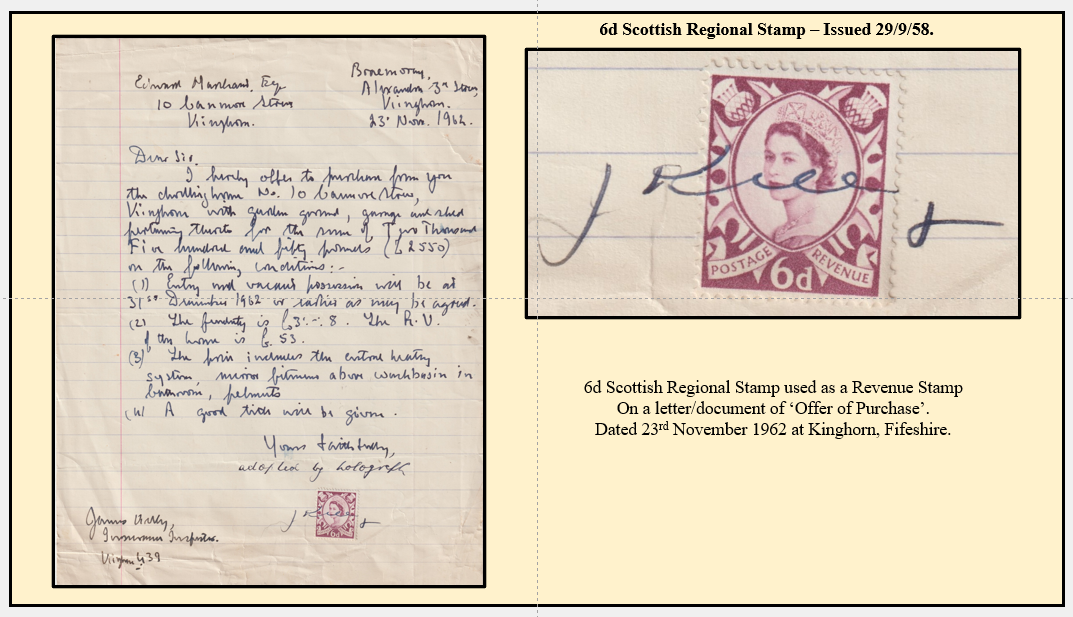 6d Scottish Regional Stamp – Issued 29/9/58.
Edward Marchand, Esq
10
Kinghorn.
Braemorny,
Alexandra 3rd Street,
Kinghorn.
23rd Nov. 1962.
Dear Sir,
I hereby offer to purchase from you
the dwellinghouse No. 10 Street,
Kinghorn with garden ground, garage and shed
pertaining thereto for the sum of Two Thousand
Five hundred and fifty pounds (£2550)
on the following conditions:-
(1) Entry and vacant possession will be at
31st December 1962 or earlier as may be agreed.
(2) The feuduty is £3:-:8. The R.V.
of the house is £53.
(3) The price includes the central heating
system, mirror fitment above washbasin in
bathroom, pelmets
(4) A good title will be given.
Yours faithfully
adopted by holograph
J
POSTAGE
REVENUE
6d
James
Insurance Inspector.
Kinghorn 439
J
POSTAGE
REVENUE
6d
6d Scottish Regional Stamp used as a Revenue Stamp
On a letter/document of ‘Offer of Purchase’.
Dated 23rd November 1962 at Kinghorn, Fifeshire.